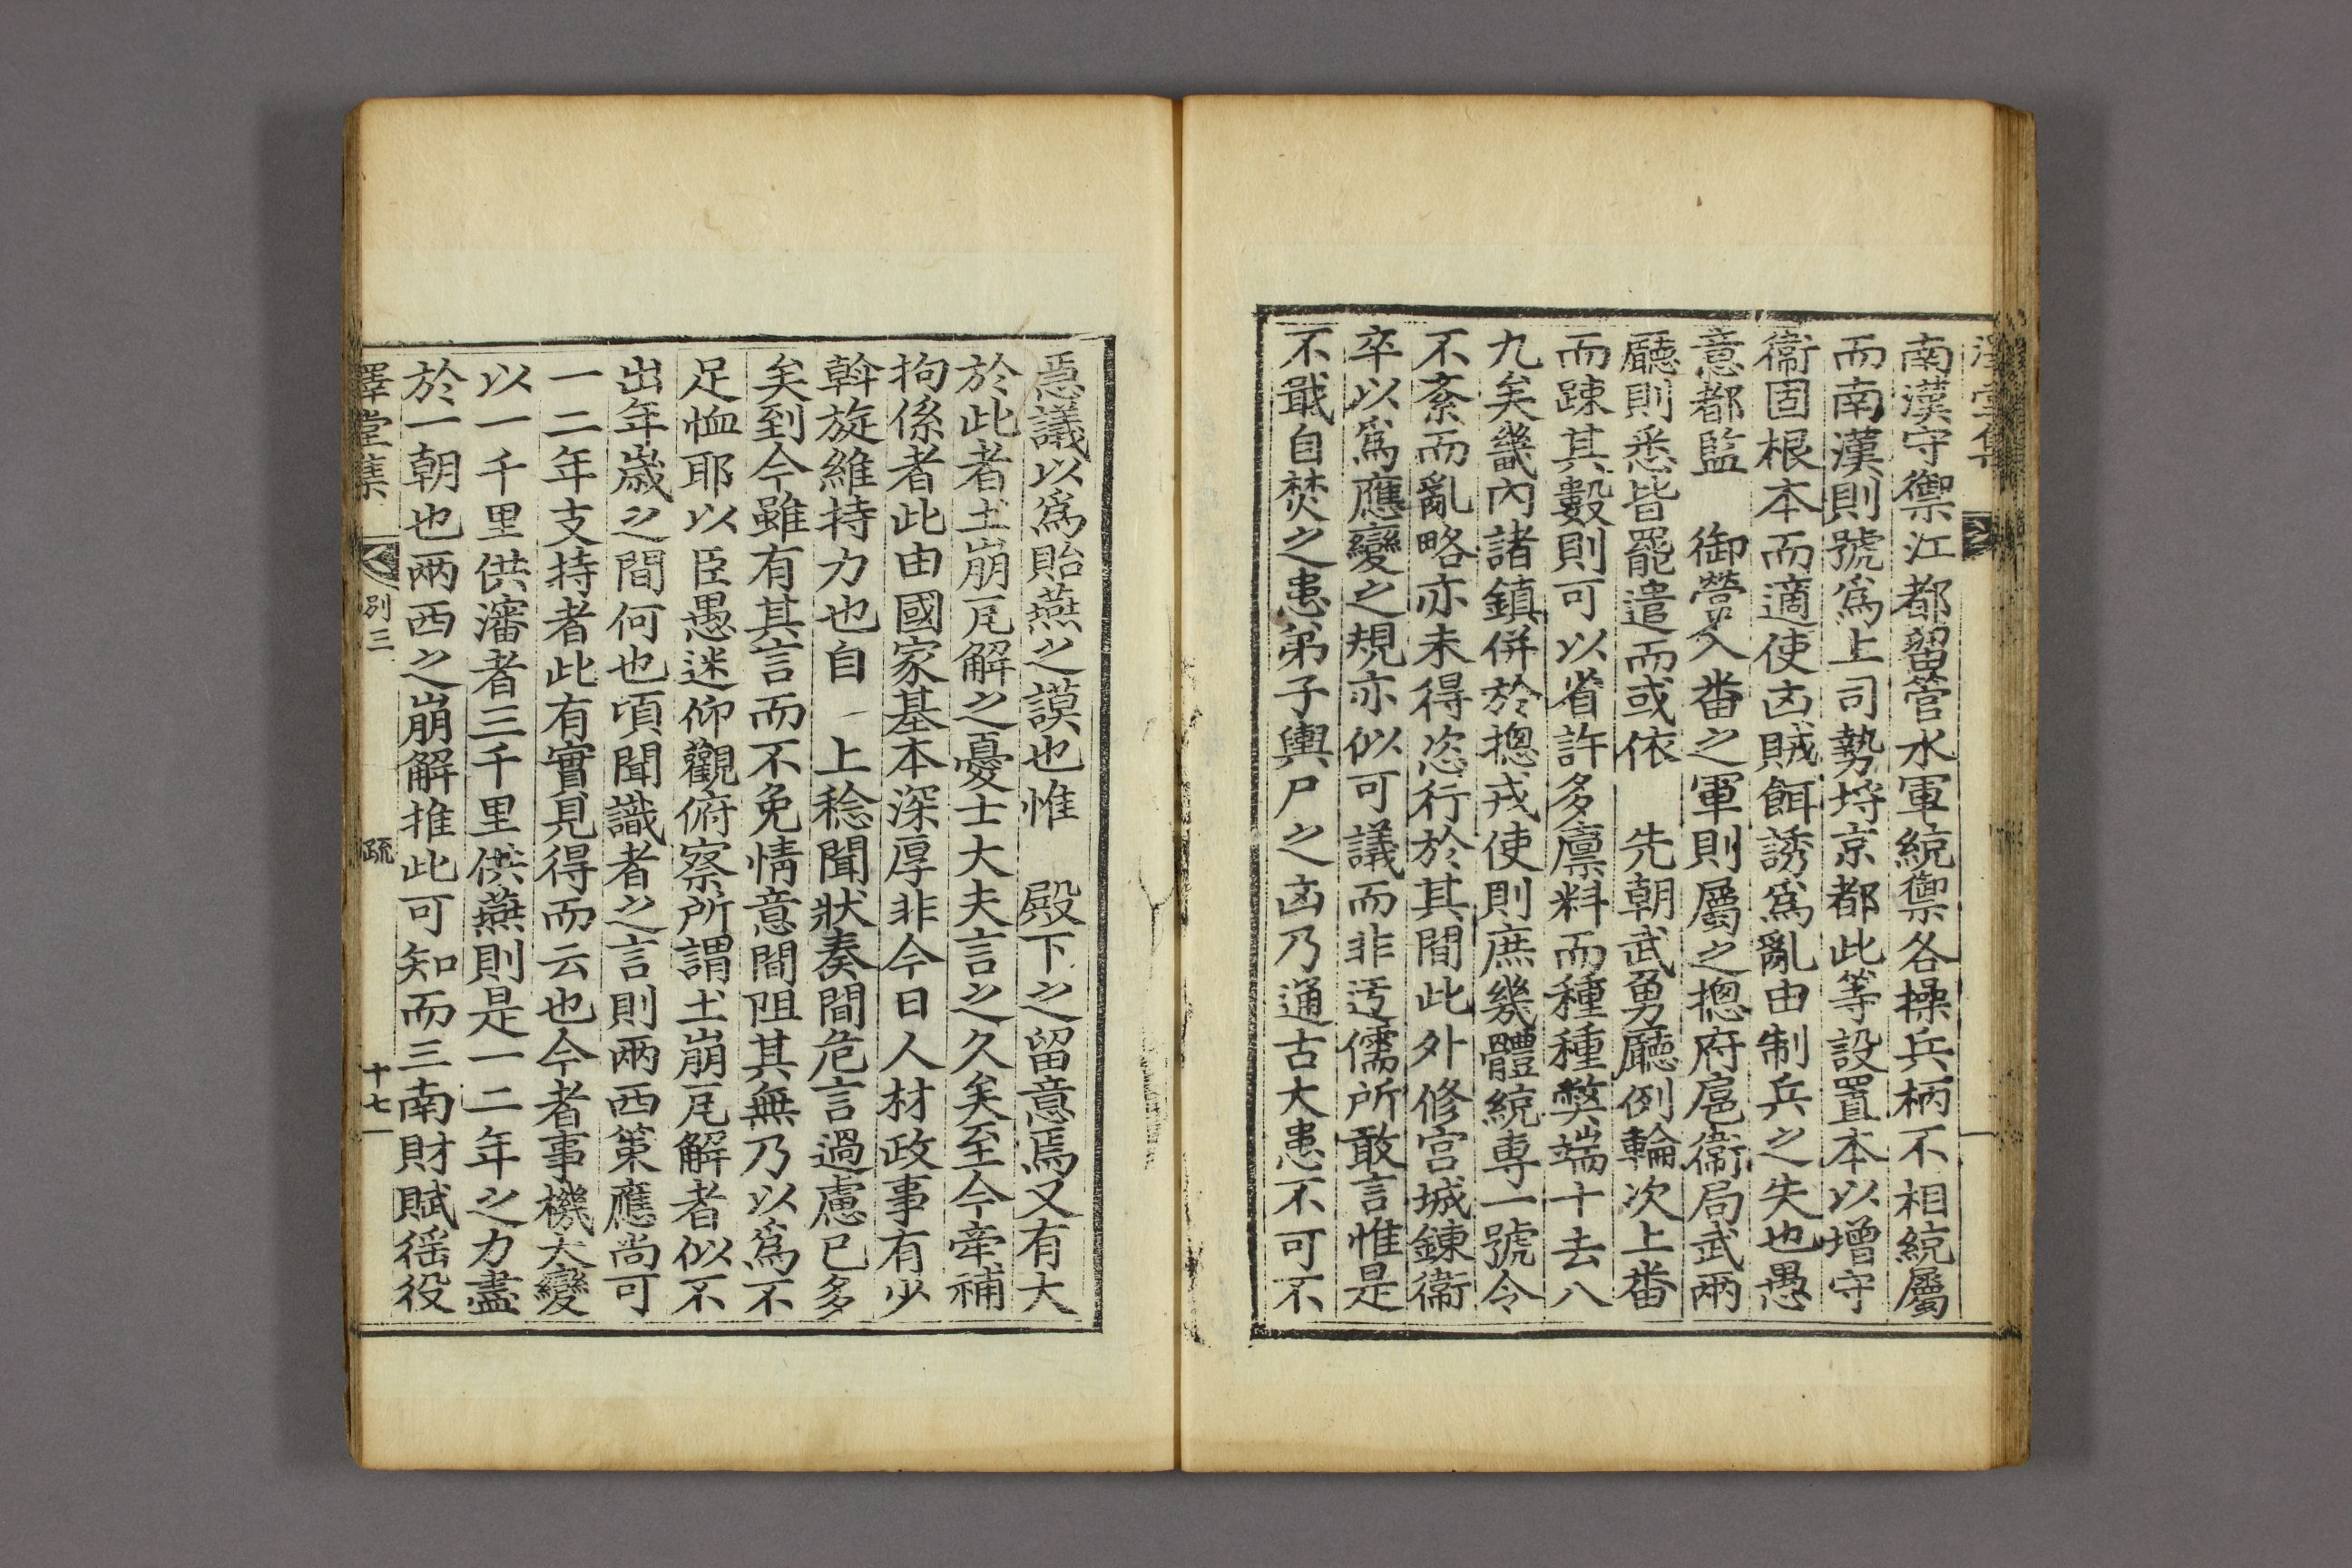 南漢守禦江都留管水軍統禦各操兵柄不相統屬
而南漢則號爲上司勢埒京都此等設置本以增守
衞固根本而適使凶賊餌誘爲亂由制兵之失也愚
意都監 御營入番之軍則屬之摠府扈衞局武兩
廳則悉皆罷遣而或依 先朝武勇廳例輪次上番
而踈其數則可以省許多廪料而種種獘端十去八
九矣畿內諸鎮併於摠戎使則庶幾體統專一號令
不紊而亂略亦未得恣行於其間此外修宮城鍊衞
卒以爲應變之規亦似可議而非迃儒所敢言惟是
不戢自焚之患弟子輿尸之凶乃通古大患不可不
忘議以爲貽燕之謨也惟 殿下之留意焉又有大
於此者土崩瓦解之憂士大夫言之久矣至今牽補
拘係者此由國家基本深厚非今日人材政事有少
斡旋維持力也自 上稔聞狀奏間危言過慮已多
矣到今雖有其言而不免情意間阻其無乃以爲不
足恤耶以臣愚迷仰觀俯察所謂土崩瓦解者似不
出年歲之間何也頃聞識者之言則兩西策應尚可
一二年支持者此有實見得而云也今者事機大變
以一千里供瀋者三千里供燕則是一二年之力盡
於一朝也兩西之崩解推此可知而三南財賦徭役
澤堂集 別三 疏 十七